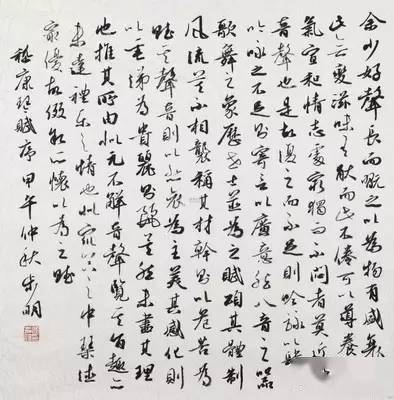 余少好聲長而翫之以為物有盛衰
此無變滋味有猒而此不倦可以導養
氣宣和情志處窮獨而不悶者莫近
音聲也是故復之而不足則吟詠以肆
以詠之不足則寄言以廣意然八音之器
歌舞之象歷世士並為之賦頌其體制
風流莫不相襲稱其材幹則以危苦為
賦其聲音則以悲哀為主美其感化則
以垂涕為貴麗則麗矣然未盡其理
也推其所由似元不解音聲覽其旨趣亦
未達禮樂之情也眾器之中琴德
最優故綴敘所懷以為之賦
嵇康琴賦序甲午仲秋步明